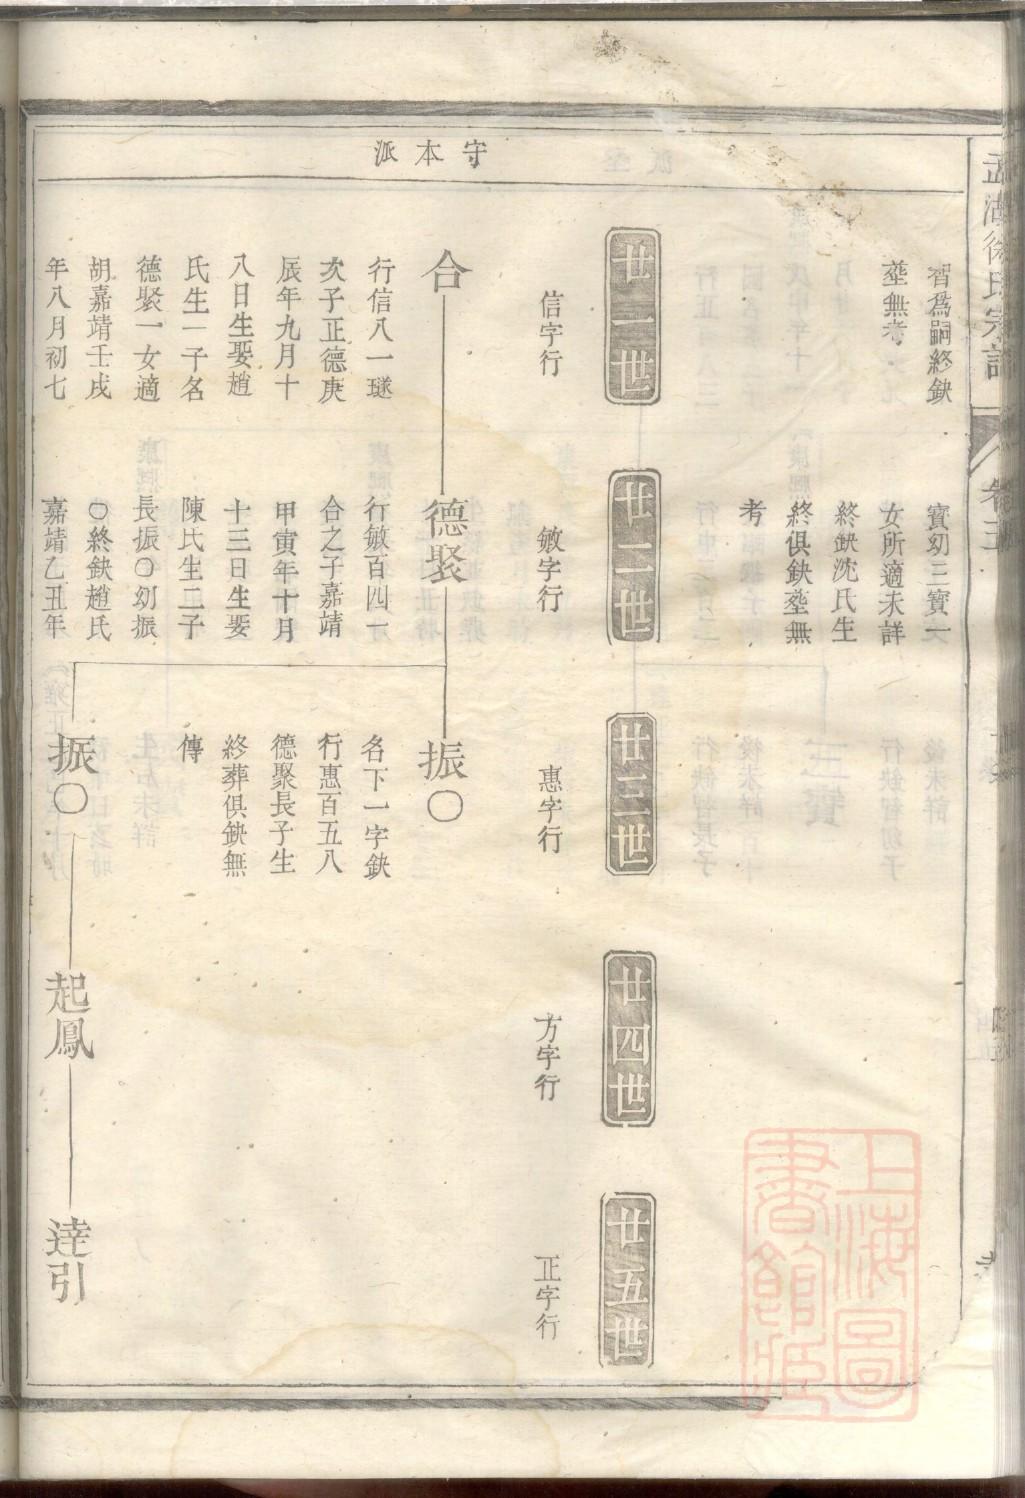 孟湖徐氏宗譜
卷三
守本派
智爲嗣終缺
塟無考
寶幼三寶一
女所適未詳
終缺沈氏生
終俱缺塟無
考
廿一世
廿二世
廿三世
廿四世
廿五世
信字行
敏字行
惠字行
方字行
正字行
合
行信八一璲
次子正德庚
辰年九月十
八日生娶趙
氏生一子名
德聚一女適
胡嘉靖壬戌
年八月初七
德聚
行敏百四一
合之子嘉靖
甲寅年十月
十三日生娶
陳氏生二子
長振〇幼振
〇終缺趙氏
嘉靖乙丑年
振〇
名下一字缺
行惠百五八
德聚長子生
終葬俱缺無
傳
振〇
起鳳
達引
上海圖書館藏